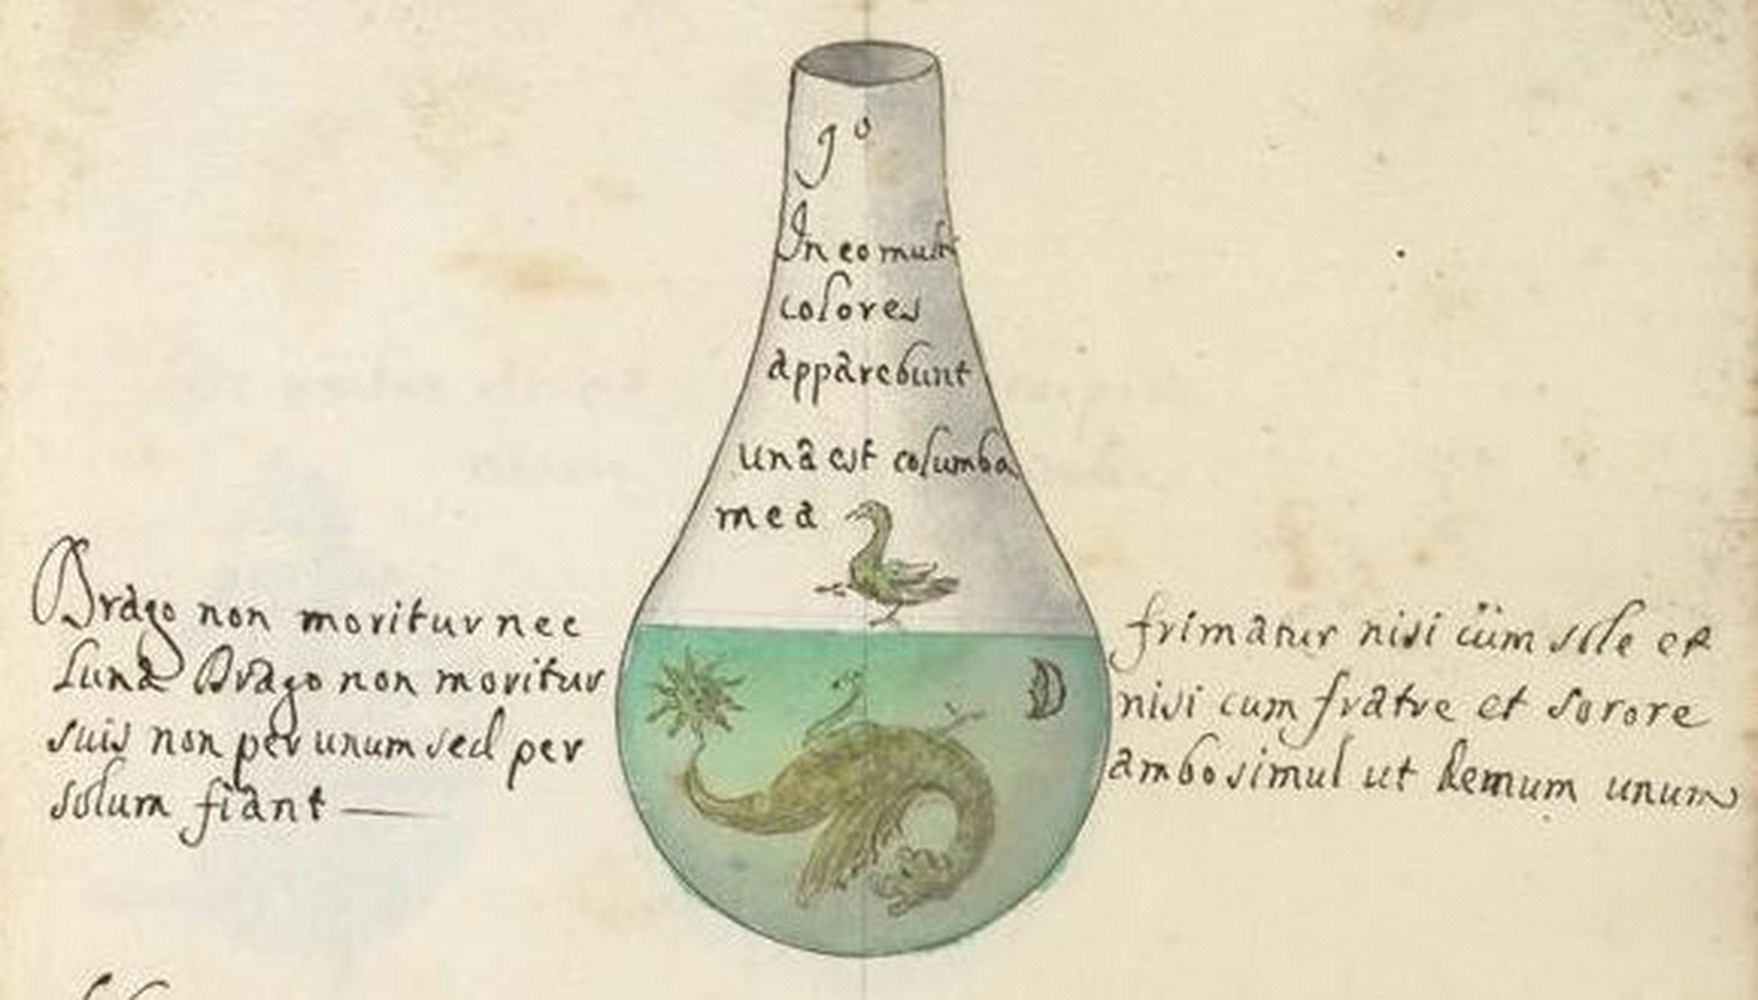 9º
In eo multi
colores
apparebunt
una est columba
mea
Drago non moritur nec
frimatur nisi cüm sole et
Luna Drago non moritur
nisi cum fratre et sorore
suis non per unum sed per
ambo simul ut demum unum
solum fiant —